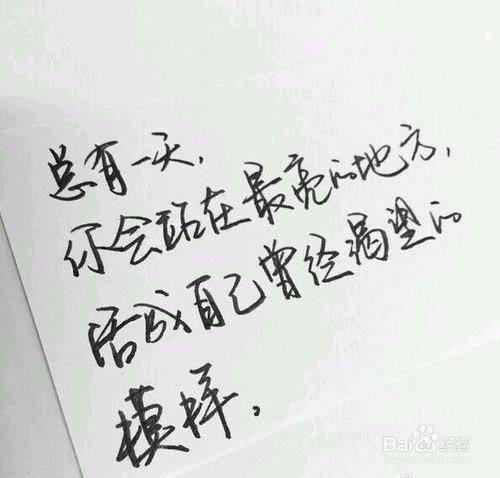 总有一天，
你会站在最亮的地方，
活成自己曾经渴望的
模样。
Baidu经验
jingyan.baidu.com